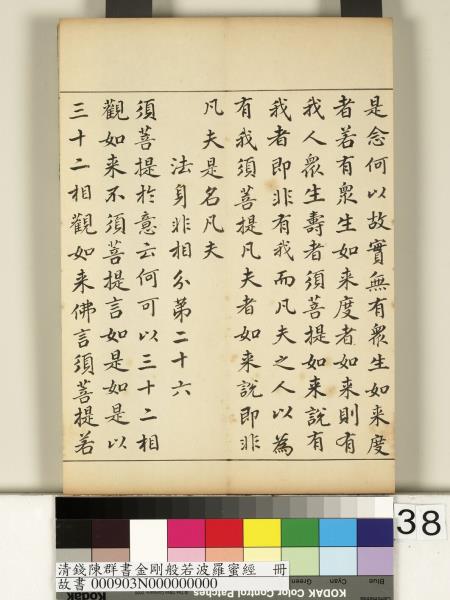 是念何以故實無有眾生如来度
者若有眾生如来度者如来則有
我人眾生壽者須菩提如来說有
我者即非有我而凡夫之人以為
有我須菩提凡夫者如来說即非
凡夫是名凡夫
法身非相分第二十六
須菩提於意云何可以三十二相
觀如来不須菩提言如是如是以
三十二相觀如来佛言須菩提若
38
清錢陳群書金剛般若波羅蜜經 冊
故書 000903N000000000
Blue
Cyan
Green
Kodak
KODAK Color Control Patches